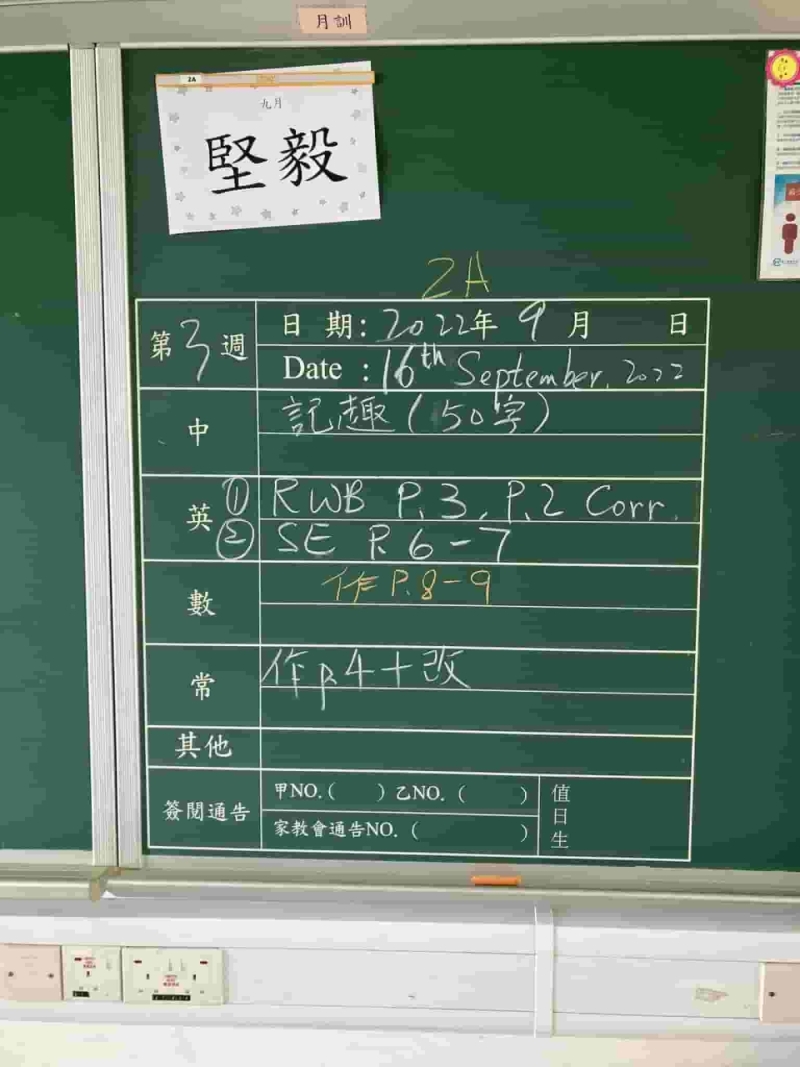 月訓
2A
九月
堅毅
2A
第3週
日期:2022年9月 日
Date :16th September, 2022
中
記趣(50字)
英
① RWB P.3, P.2 Corr.
② SE P.6-7
數
作P.8-9
常
作p.4+改
其他
簽閱通告
甲NO.( )乙NO.( )
家教會通告NO.( )
值日生